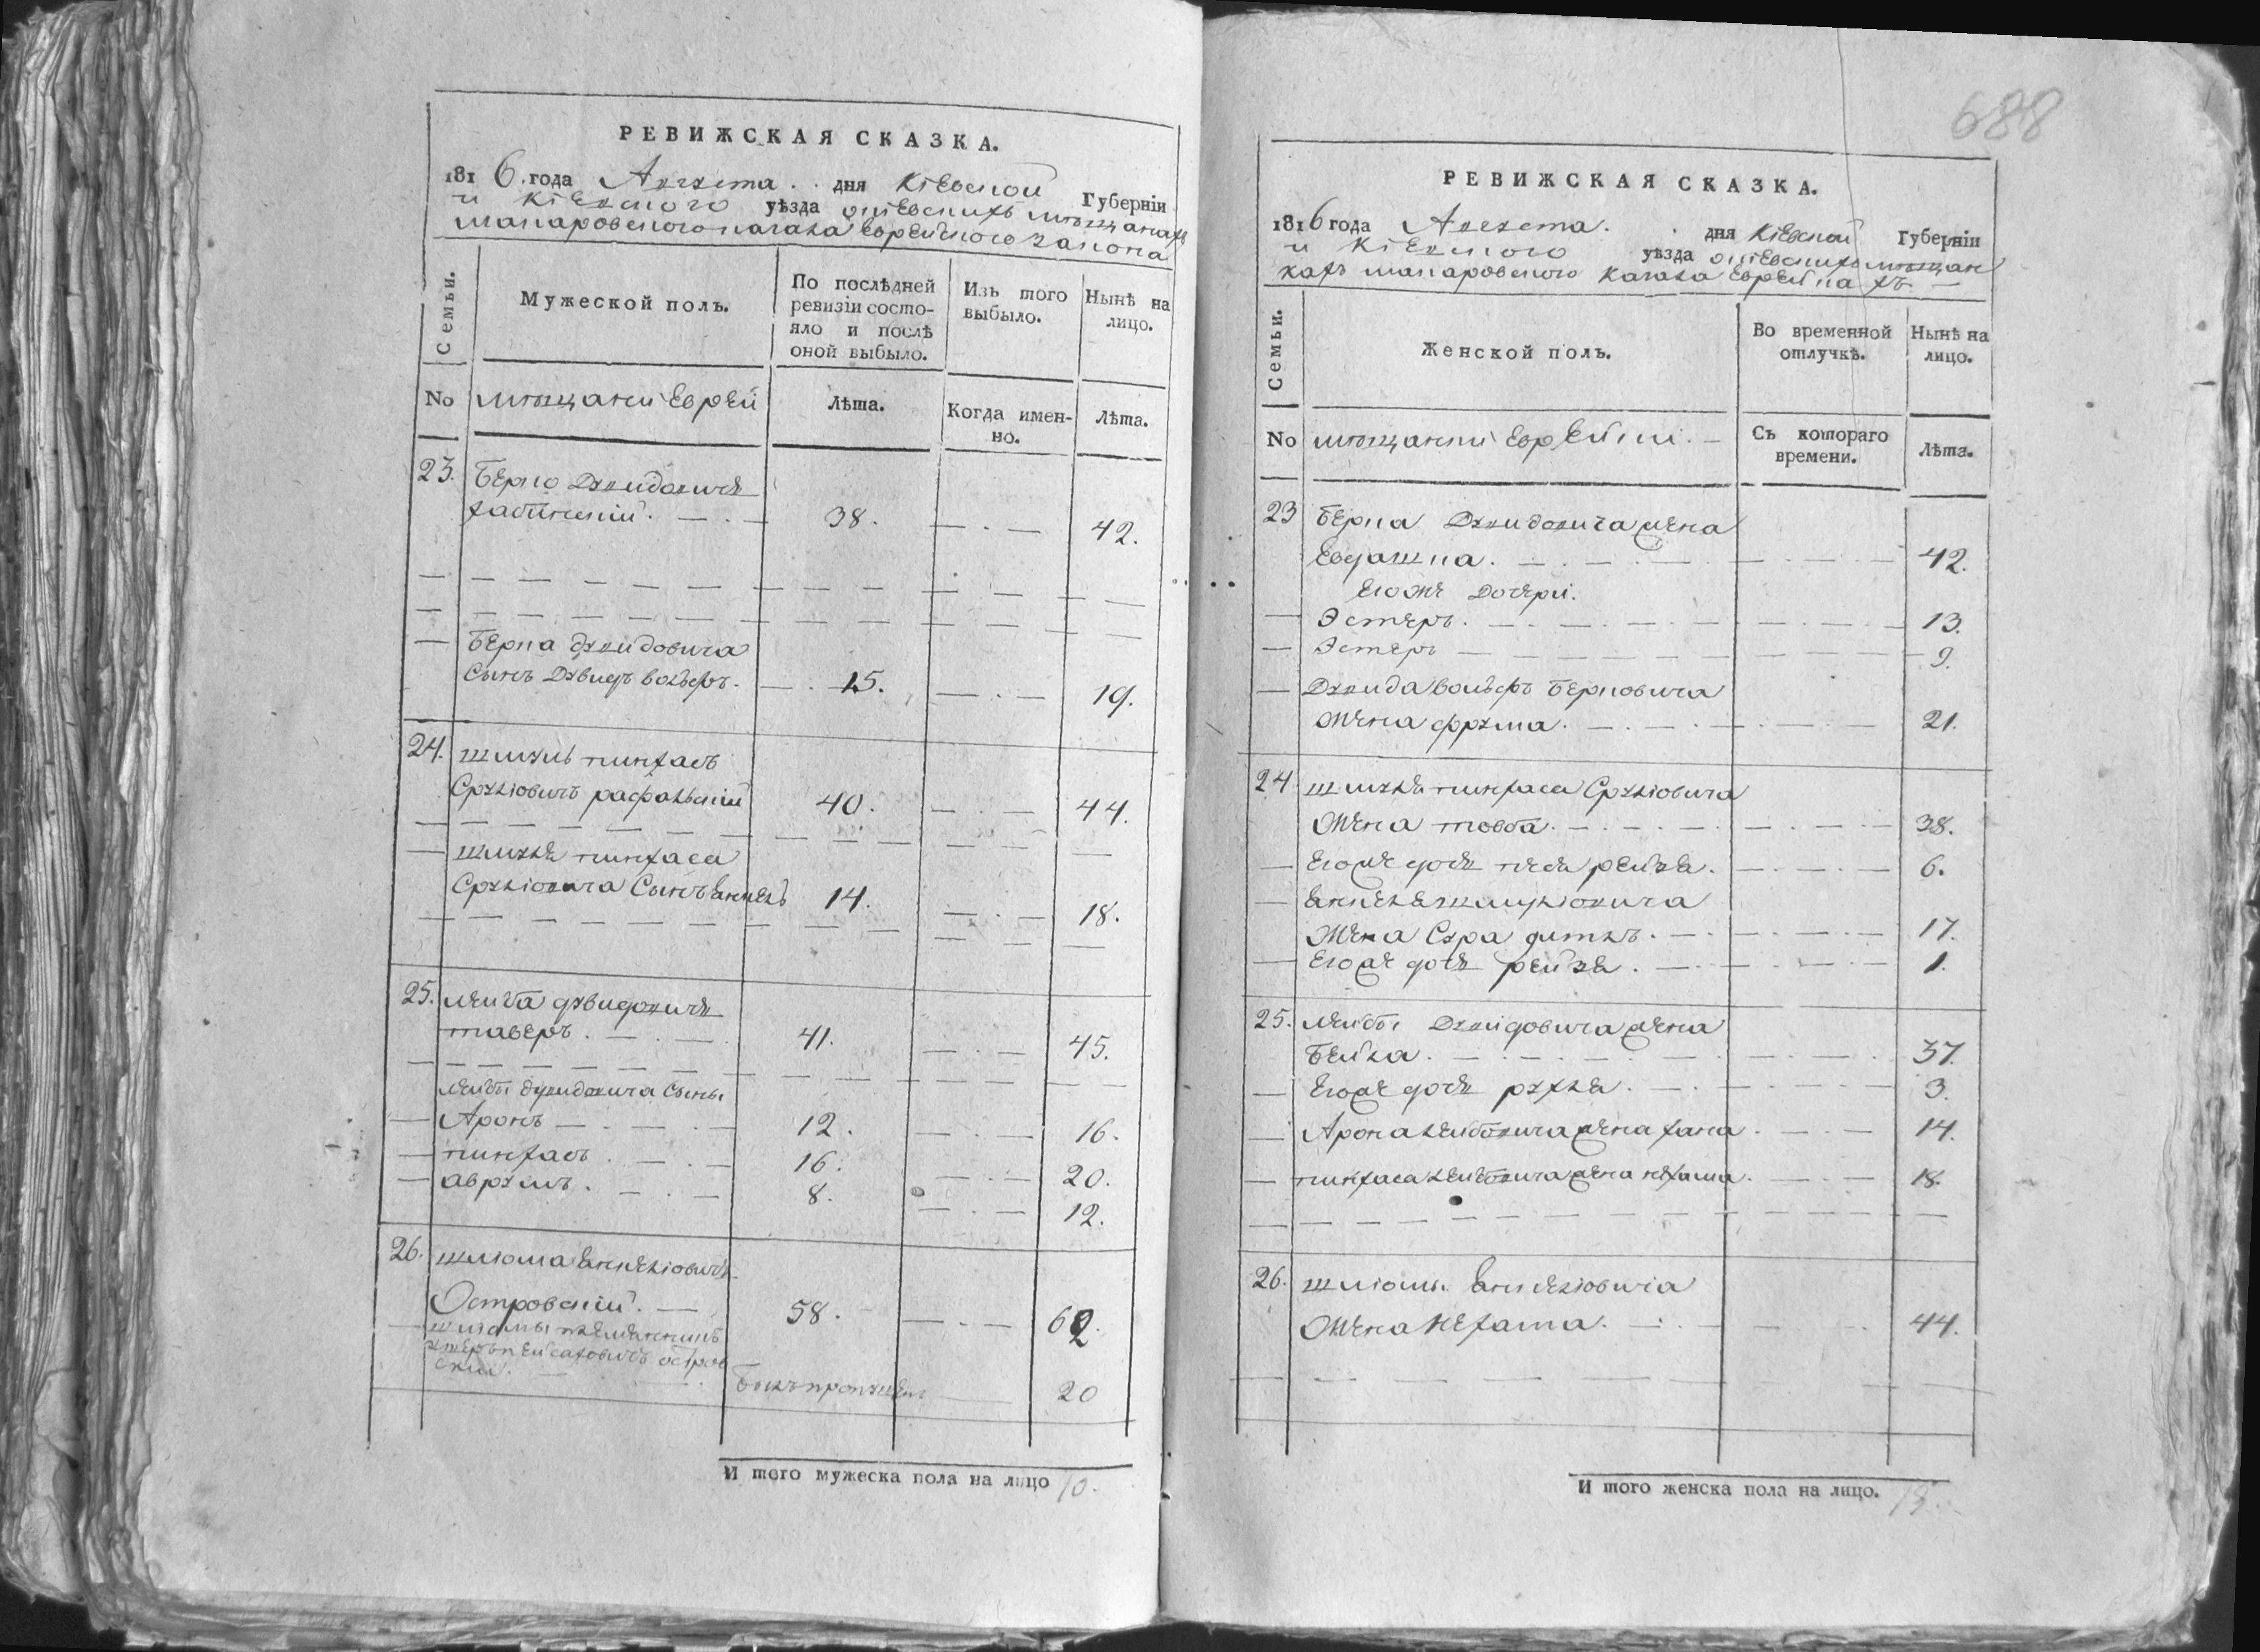 РЕВИЖСКАЯ СКАЗКА.
1816. года Августа . . дня Кіевской Губерніи
и Кіевского уѣзда о кіевскихъ мѣщанахъ
макаровского кагала Еврейского закона
Семьи.
Мужеской полъ.
По послѣдней ревизіи состояло и послѣ оной выбыло.
Изъ того выбыло.
Нынѣ на лицо.
No мѣщани Еврей
Лѣта.
Когда именно.
Лѣта.
23. Берко Дувидовичъ
38. 42.
Берка Дувидовича
Сынъ Дувидъ Вольфъ. 15. 19.
24. Шмуль Пинхасъ
Сруліовичъ Рафальскій 40. 44.
Шмуля Пинхаса
Сруліовича Сынъ Янкель 14. 18.
25. Лейба Дувидовичъ
таверъ. 41. 45.
Лейбы Дувидовича Сыны
Аронъ 12. 16.
Пинхасъ. 16. 20.
Аврумъ. 8. 12.
26. Шлиома Янкеліовичъ
Островскій. 58. 62.
Шліомы племянникъ
Остров
ский. Былъ пропущенъ 20
И того мужеска пола на лицо 10.
688
РЕВИЖСКАЯ СКАЗКА.
1816 года Августа. . дня Кіевской Губерніи
и Кіевского уѣзда о кіевскихъ мѣщан
кахъ макаровского кагала Еврейкахъ.
Семьи.
Женской полъ.
Во временной отлучкѣ.
Нынѣ на лицо.
No мѣщанки Еврейки.
Съ котораго времени.
Лѣта.
23 Берка Дувидовича жена
42.
Его же дочери.
Эстеръ. 13.
Эстеръ 9.
Дувида Вольфъ Берковича
Жена Фрума. 21.
24 Шмуля Пинхаса Сруліовича
Жена Товба. 38.
Его же дочь Песя Рейзя. 6.
Янкеля Шмуліовича
Жена Сура 17.
Его же дочь Рейзя. 1.
25. Лейбы Дувидовича жена
Бейла. 37.
Его же дочь Рухля. 3.
Арона Лейбовича жена Хана. 14.
Пинхаса Лейбовича жена Нехама. 18.
26. Шліомы Янкеліовичa
Жена Нехама. 44.
И того женска пола на лицо.